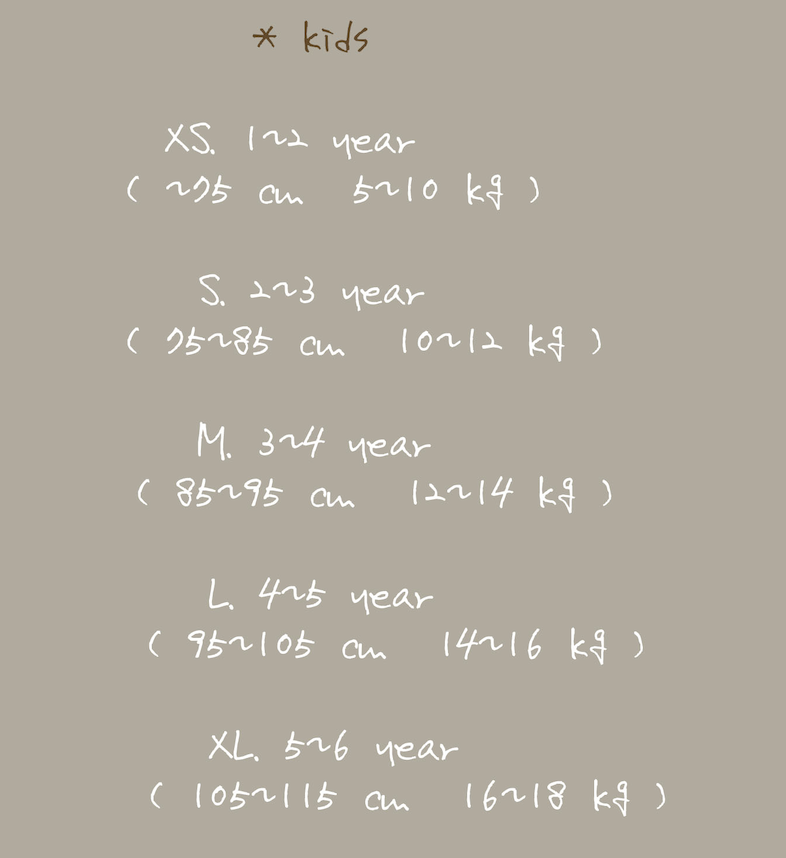 * kids
XS. 1~2 year
( ~75 cm 5~10 kg )
S. 2~3 year
( 75~85 cm 10~12 kg )
M. 3~4 year
( 85~95 cm 12~14 kg )
L. 4~5 year
( 95~105 cm 14~16 kg )
XL. 5~6 year
( 105~115 cm 16~18 kg )